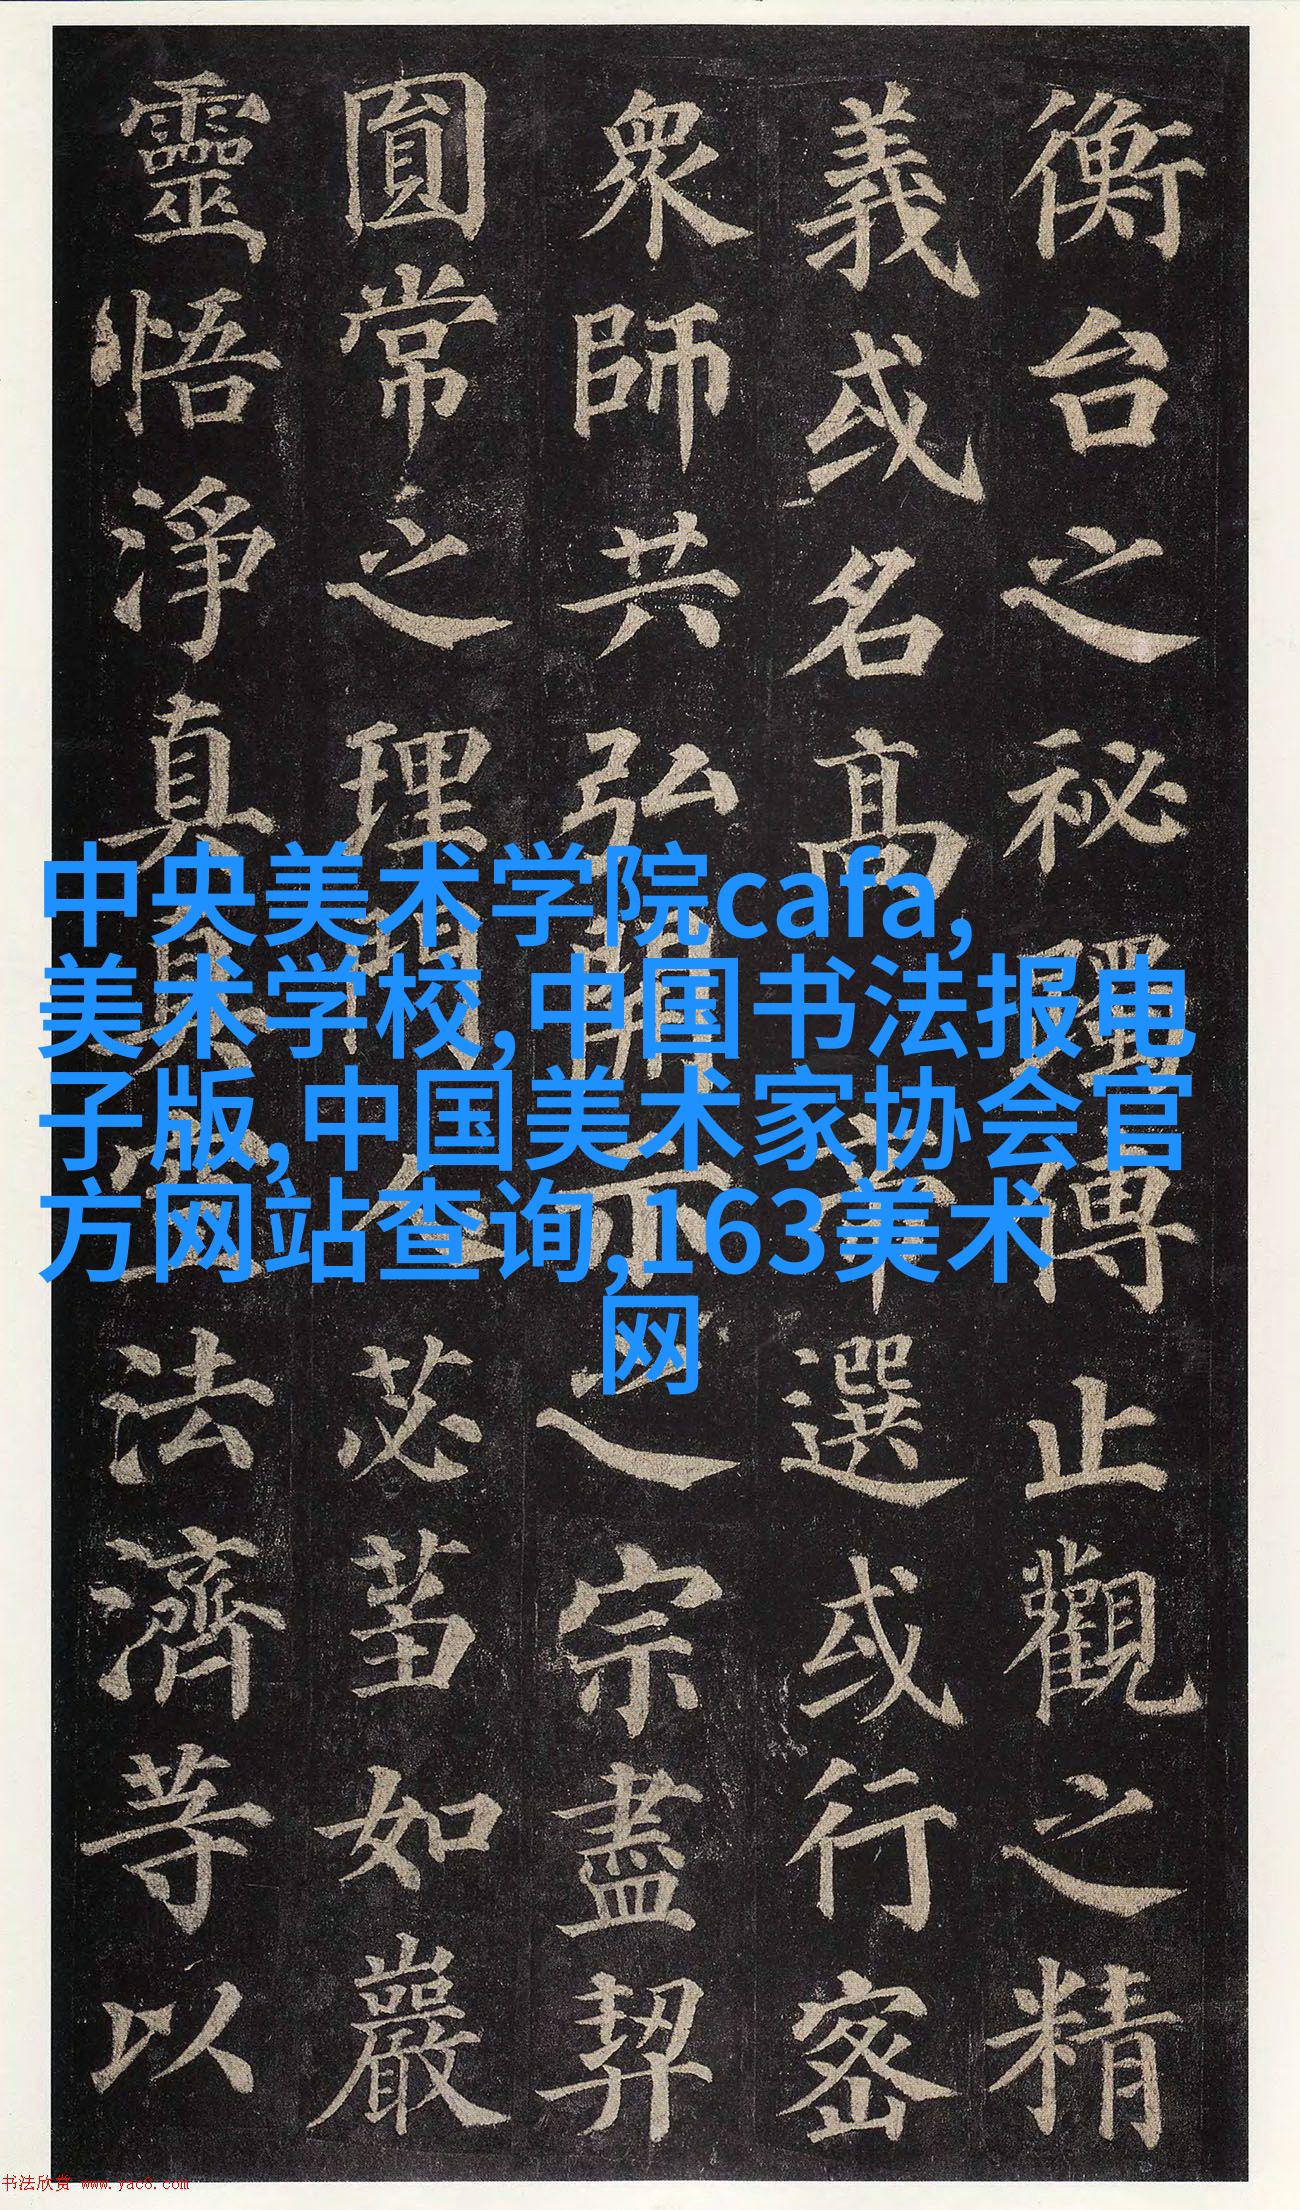 衡台之祕躅傳止觀之精
義或名高帝選或行密
衆師共弘開示之宗盡契
圎常之理門人苾蒭如巖
靈悟淨真真空法濟等以
中央美术学院cafa,
美术学校,中国书法报电
子版,中国美术家协会官
方网站查询,163美术
网
书法欣赏 www.yac8.com